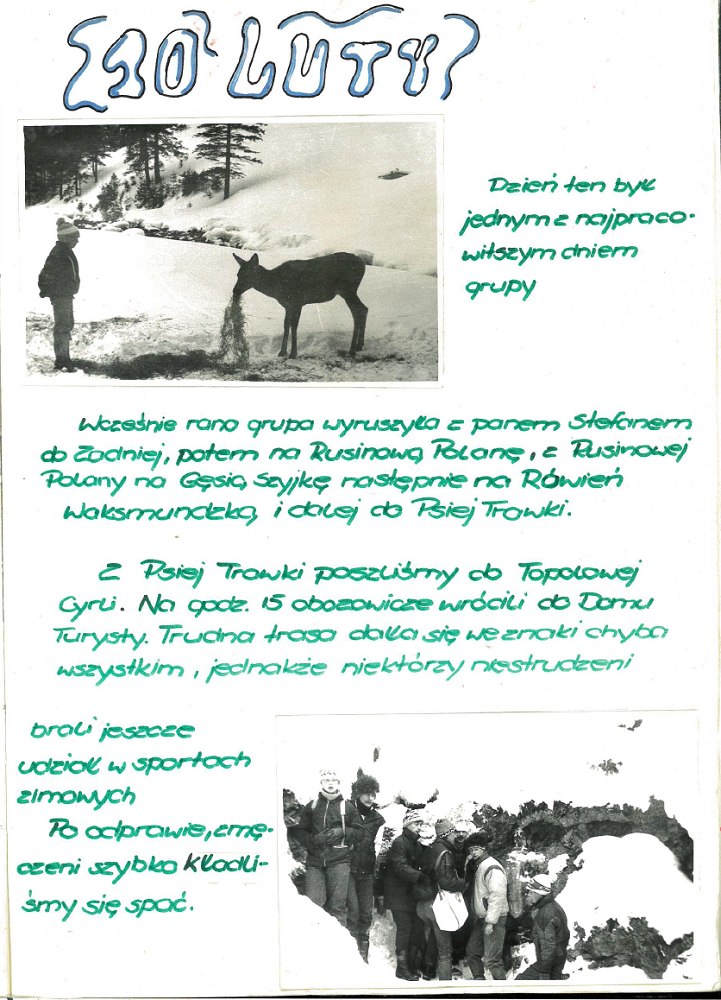 10 LUTY
Dzień ten był
jednym z najpraco-
witszym dniem
grupy
Wcześnie rano grupa wyruszyła z panem Stefanem
do Zadniej, potem na Rusinową Polanę, z Rusinowej
Polany na Gęsią Szyjkę następnie na Rówień
Waksmundzką i dalej do Psiej Trawki.
Z Psiej Trawki poszliśmy do Topolowej
Cyrli. Na godz. 15 obozowicze wrócili do Domu
Turysty. Trudna trasa dała się we znaki chyba
wszystkim, jednakże niektórzy niestrudzeni
brali jeszcze
udział w sportach
zimowych
Po odprawie, zmę-
czeni szybko kładli-
śmy się spać.